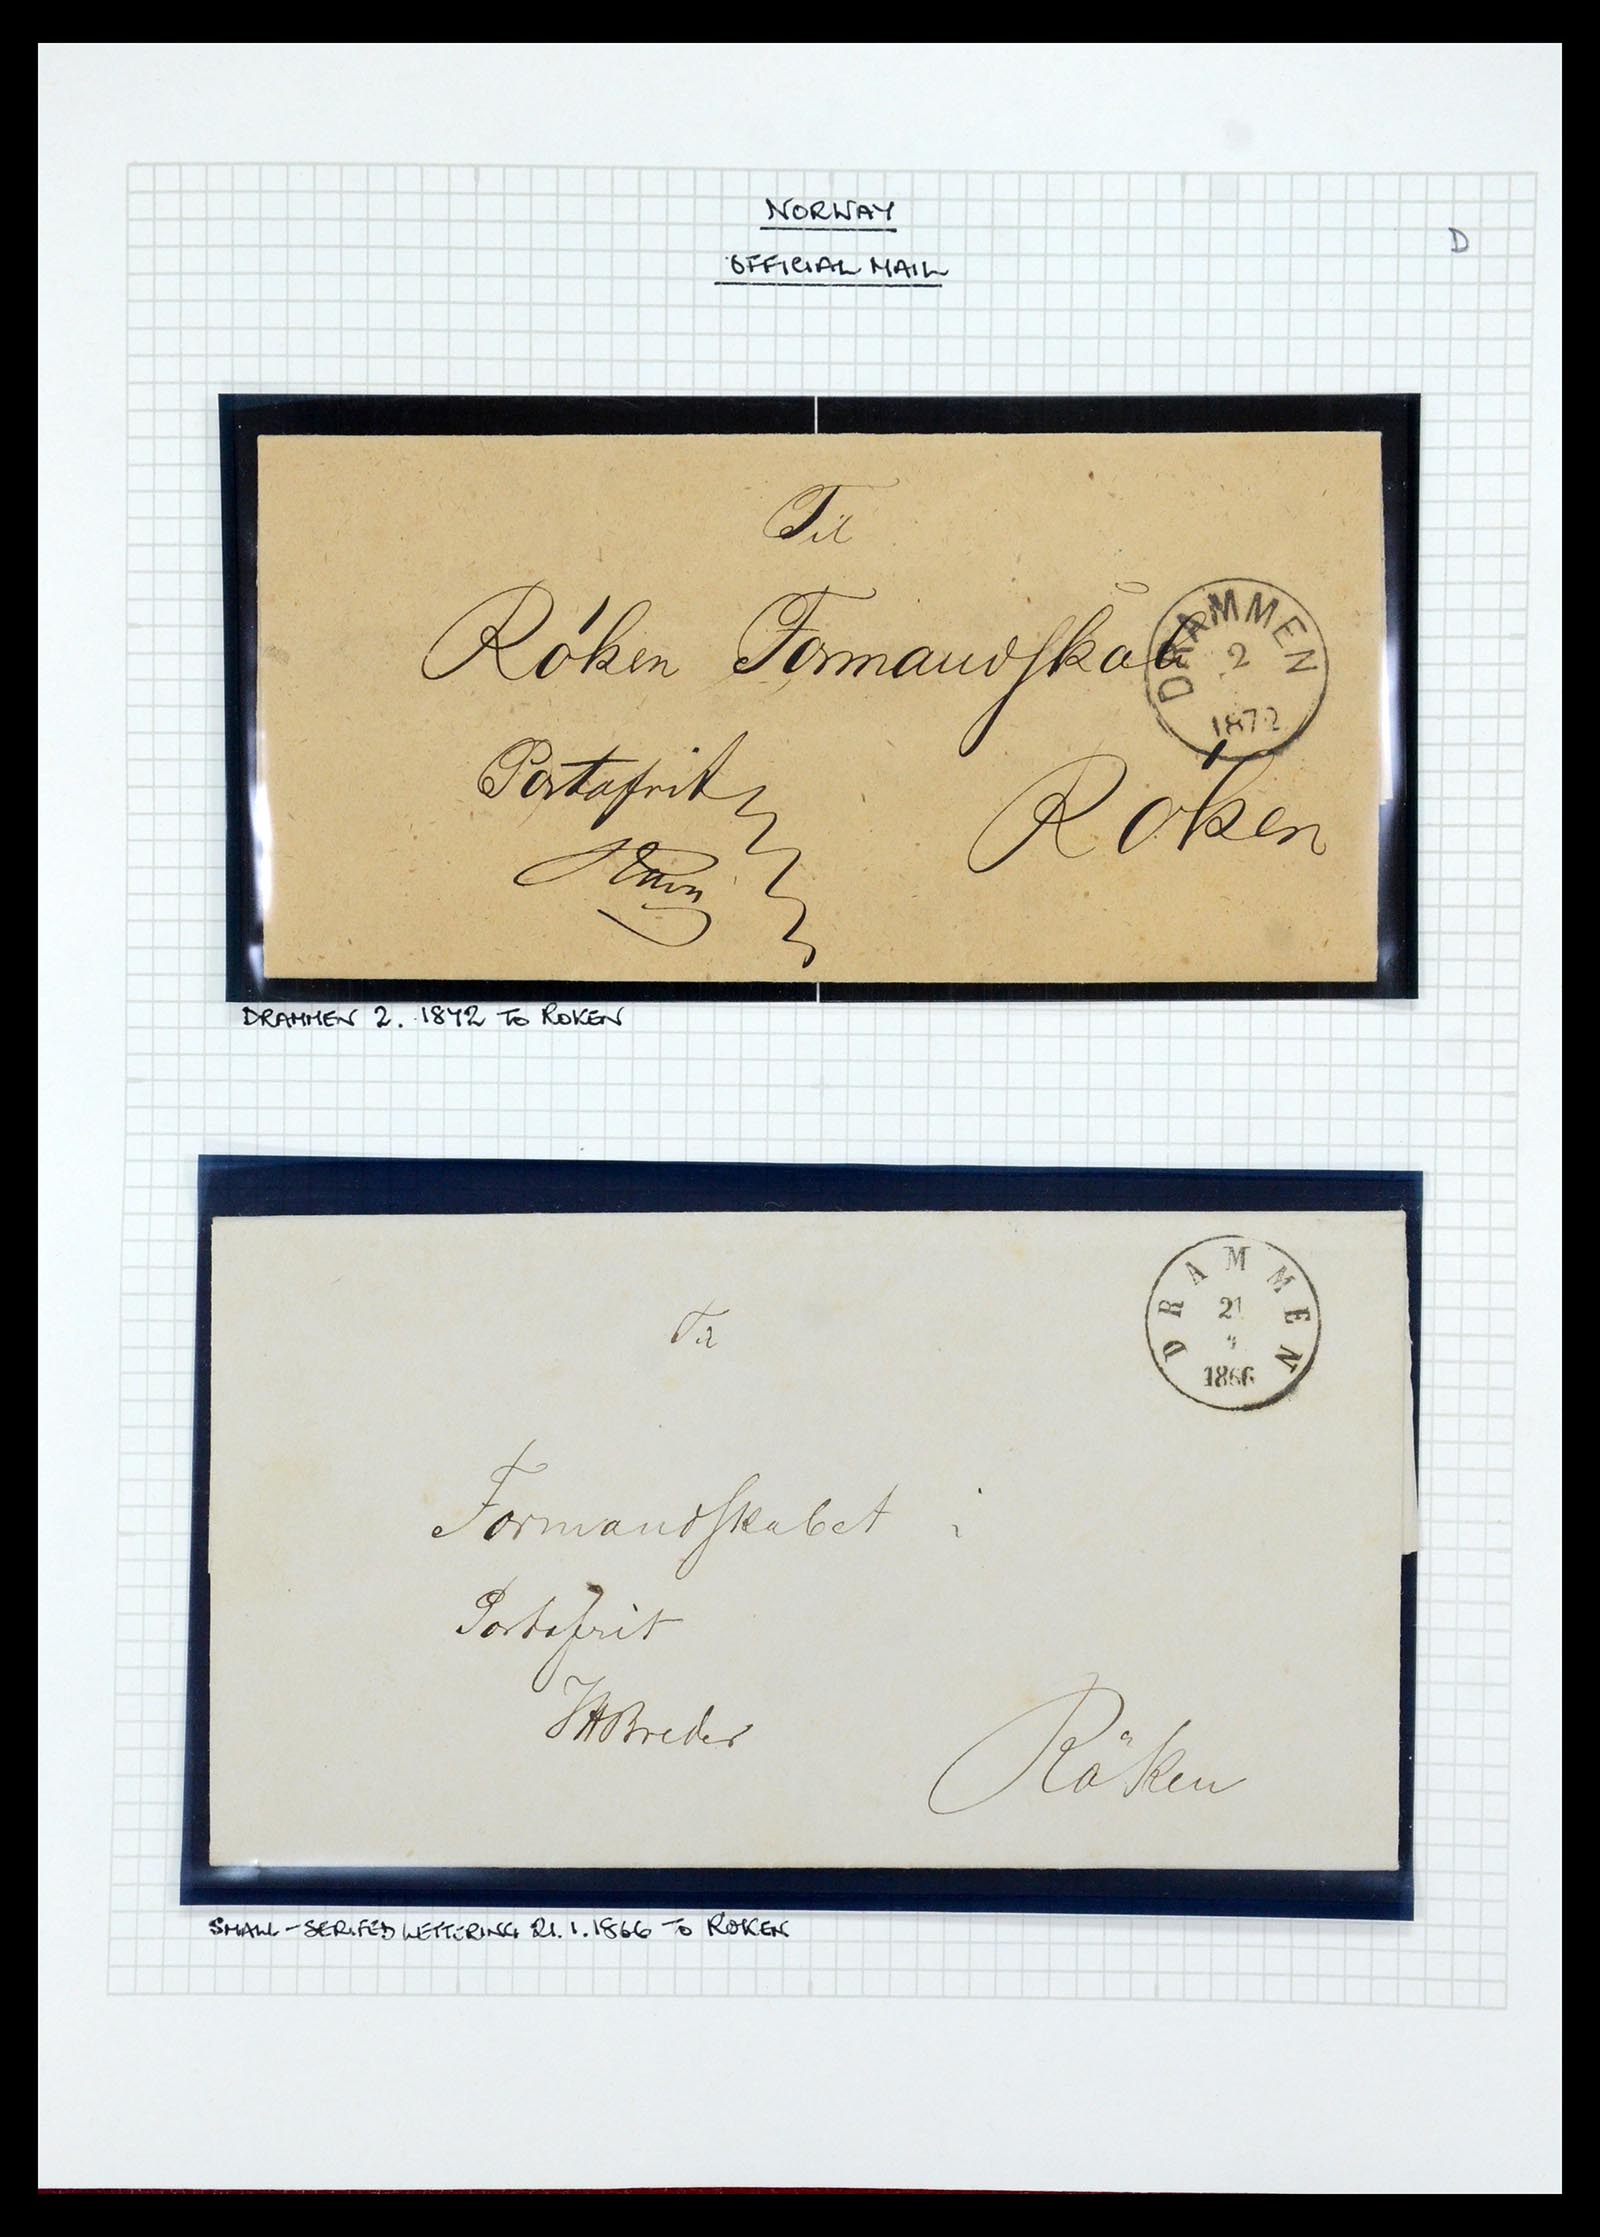 NORWAY
D
OFFICIAL MAIL
Til
Röken Formandskab
DRAMMEN
2
1872
Portofrit
Röken
DRAMMEN 2. 1872 TO ROKEN
DRAMMEN
21
1866
Til
Formandskabet i
Portofrit
Röken
SMALL-SERIFED LETTERING 21.1.1866 TO ROKEN